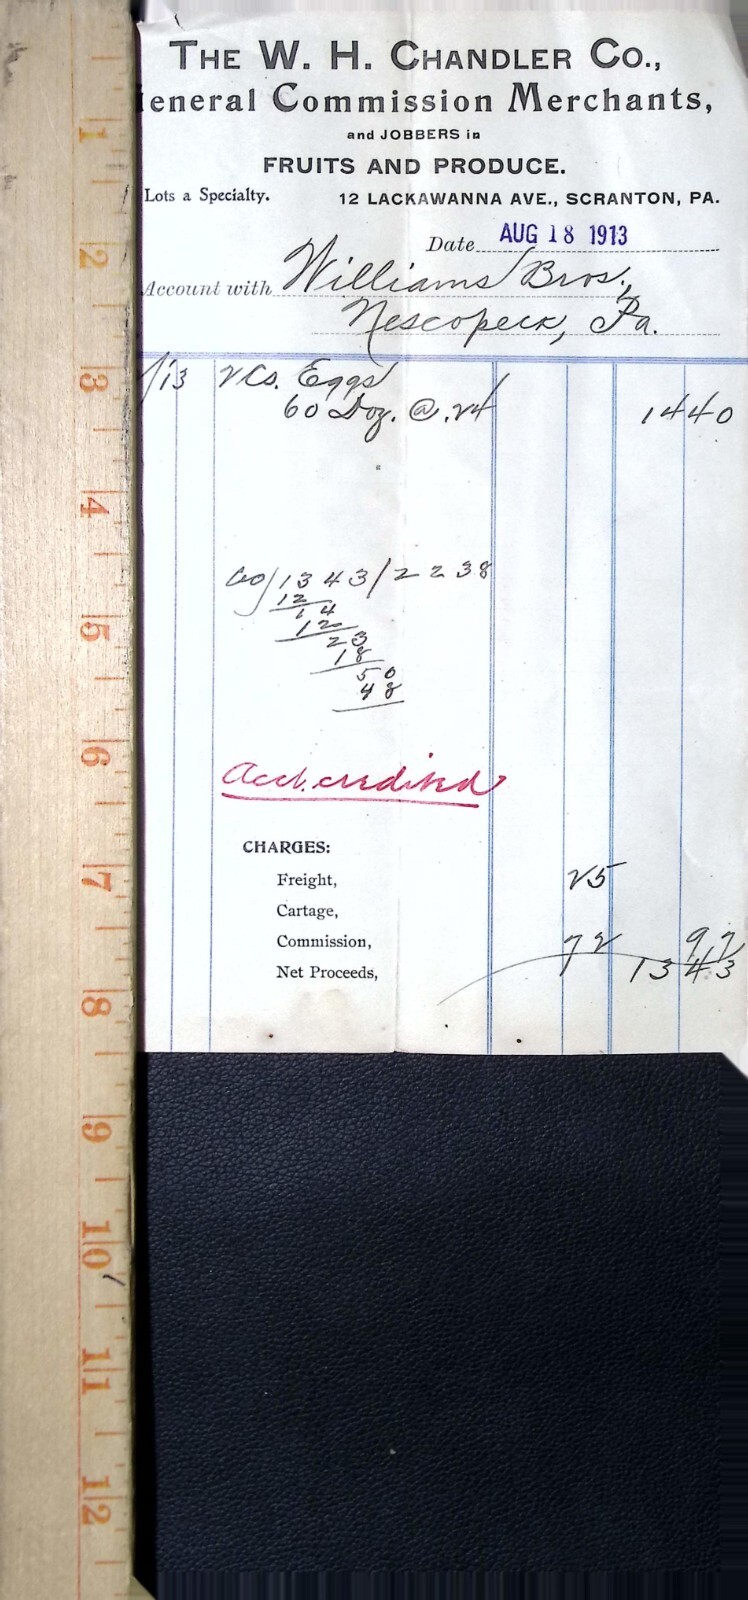 THE W. H. CHANDLER CO.,
General Commission Merchants,
and JOBBERS in
FRUITS AND PRODUCE.
Lots a Specialty. 12 LACKAWANNA AVE., SCRANTON, PA.
Date AUG 18 1913
Account with Williams Bros.,
Nescopeck, Pa.
/13 2 Cs. Eggs
60 Doz. @ .24 14 40
60/1343/2238
12
14
12
23
18
50
48
Acct. credited
CHARGES:
Freight, 25
Cartage,
Commission, 72 97
Net Proceeds, 13 43
1
2
3
4
5
6
7
8
9
10
11
12